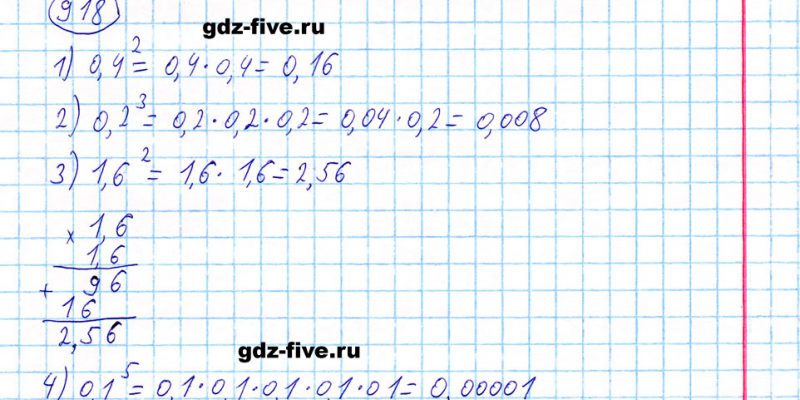 918
gdz-five.ru
1) 0,4² = 0,4·0,4 = 0,16
2) 0,2³ = 0,2·0,2·0,2 = 0,04·0,2 = 0,008
3) 1,6² = 1,6·1,6 = 2,56
x 1,6
1,6
+ 96
16
2,56
gdz-five.ru
4) 0,1⁵ = 0,1·0,1·0,1·0,1·0,1 = 0,00001